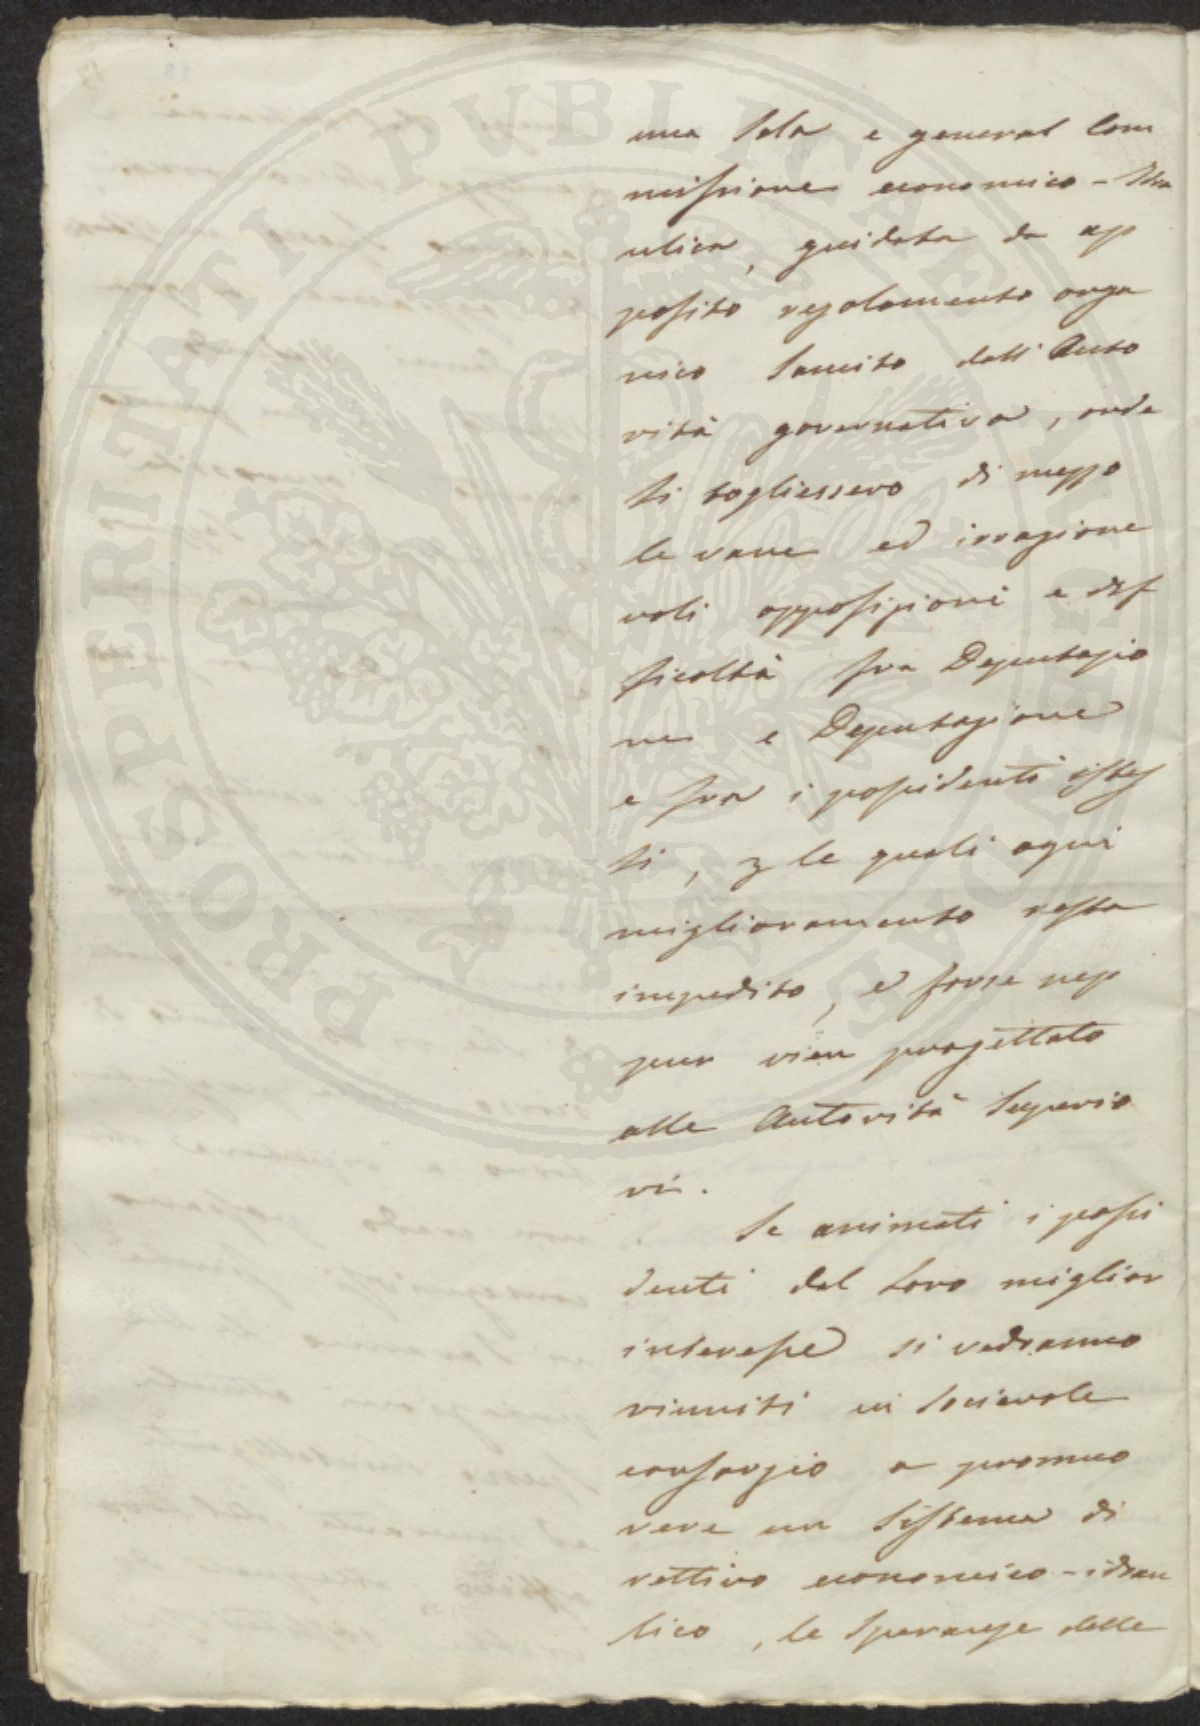 PROSPERITATI PUBLICAE AUGENDAE
una sola e general Com
missione economico - Idra
ulica, guidata da ap
posito regolamento orga
nico sancito dall'Auto
rità governativa, onde
si togliessero di mezzo
le vane ed irragione
voli opposizioni e dif
ficoltà fra Deputazio
ne e Deputazione
e fra i possidenti istes
si, per le quali ogni
miglioramento resta
impedito, e forse nep
pur vien progettato
alle Autorità Superio
ri.
Se animati i possi
denti dal loro miglior
interesse si vedranno
riuniti in socievole
consorzio a promuo
vere un sistema di
rettivo economico - idrau
lico, le speranze delle